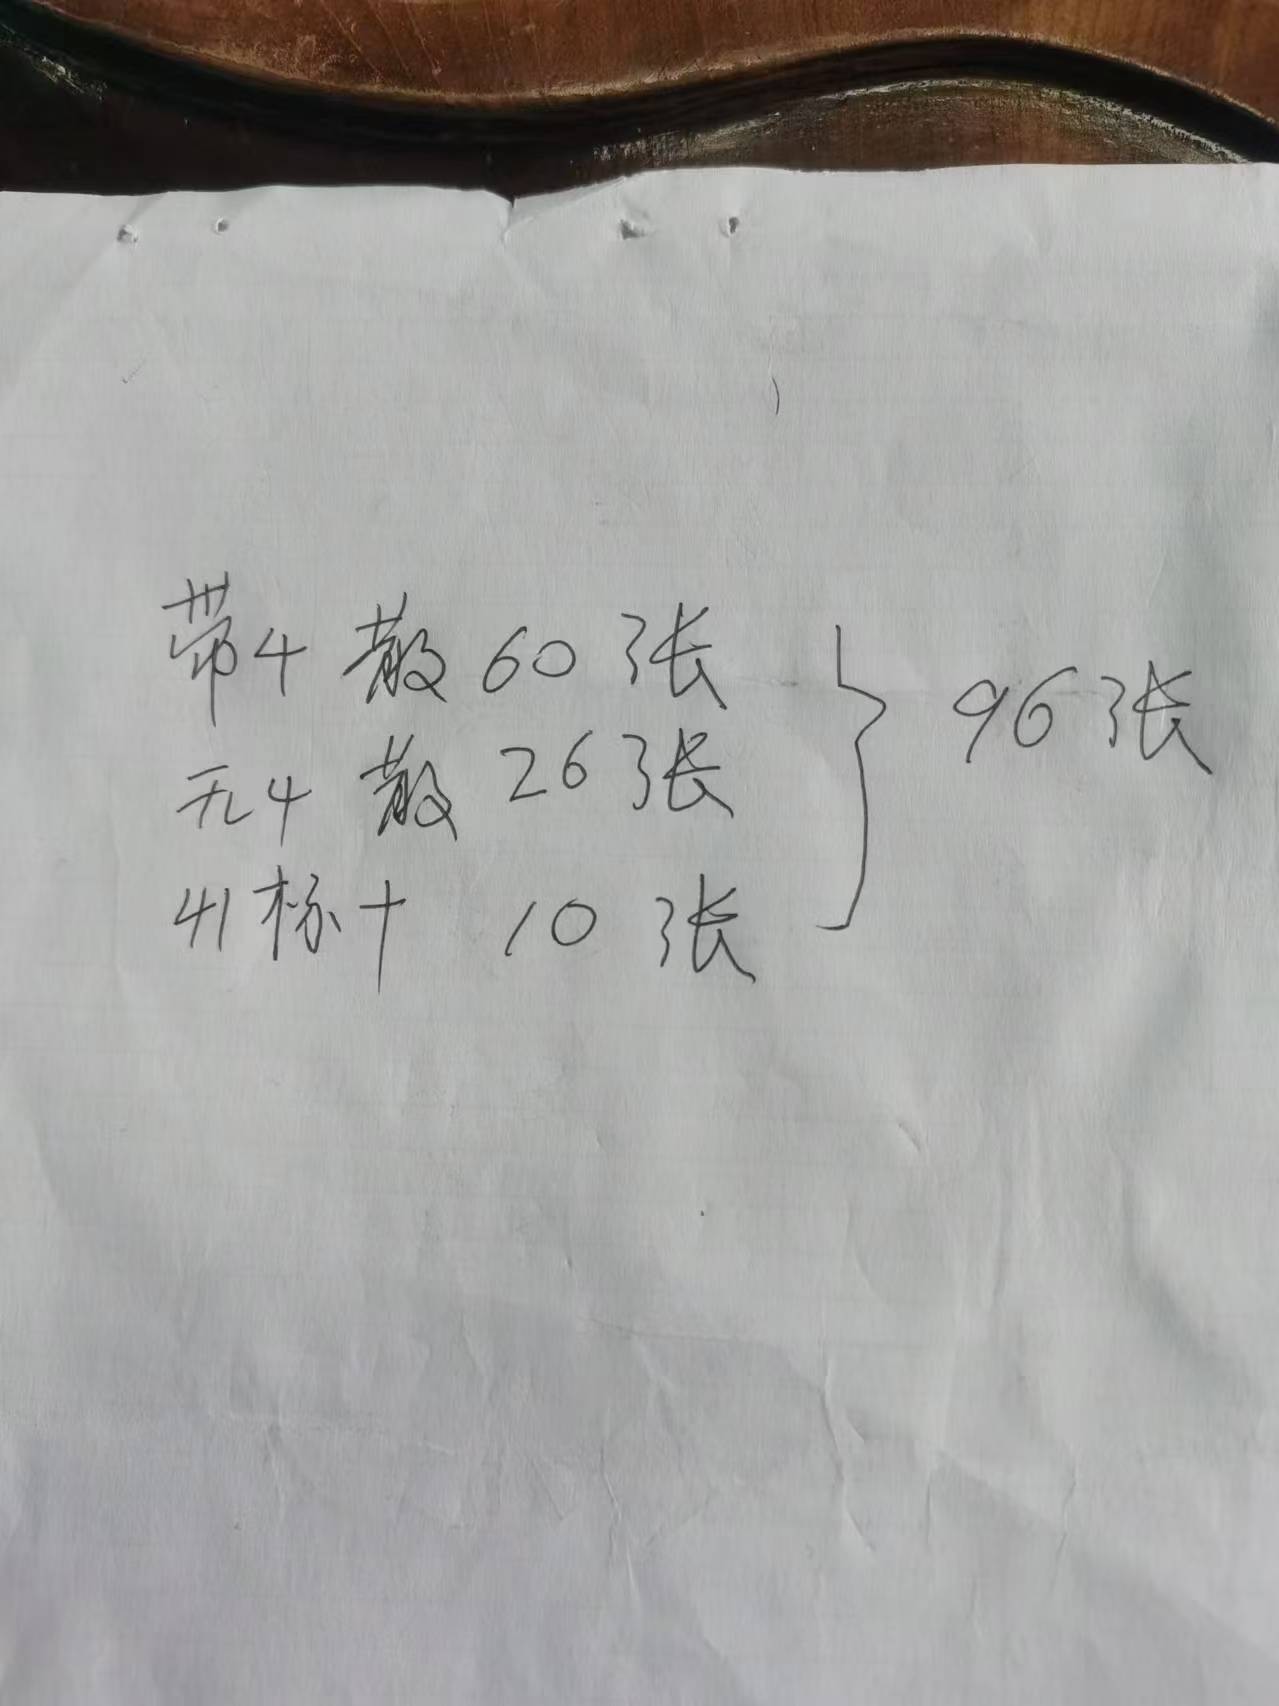 带4 散 60 张
无4 散 26 张
41 标十 10 张
96 张